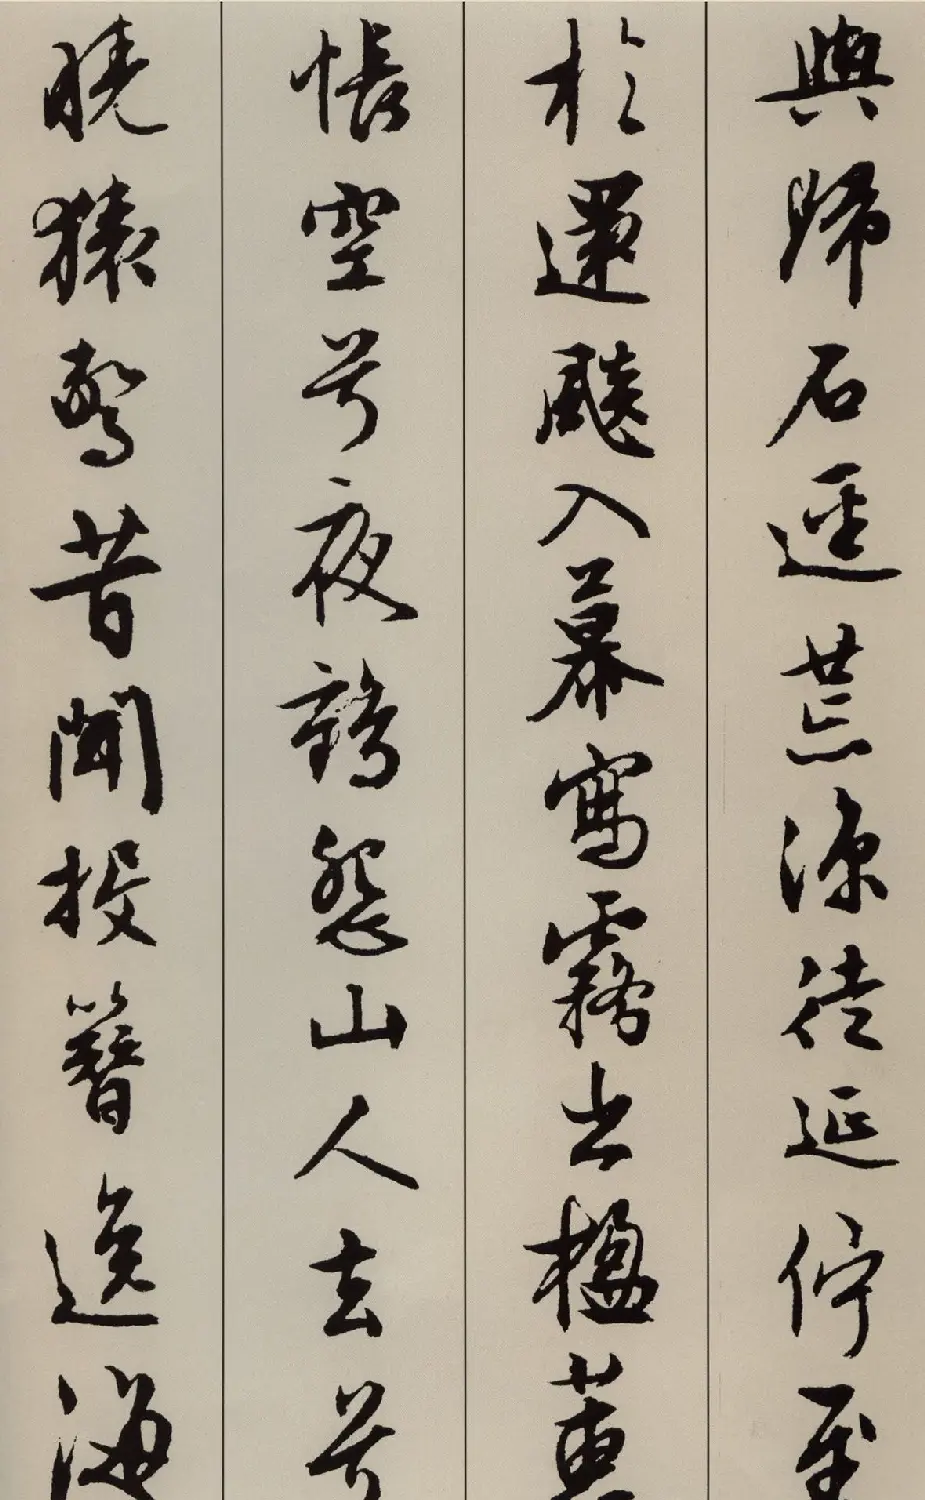 與歸石逕荒涼徒延佇至
於還飈入幕寫霧出楹蕙
悵空兮夜鶴怨山人去兮
曉猨驚昔聞投簪逸海